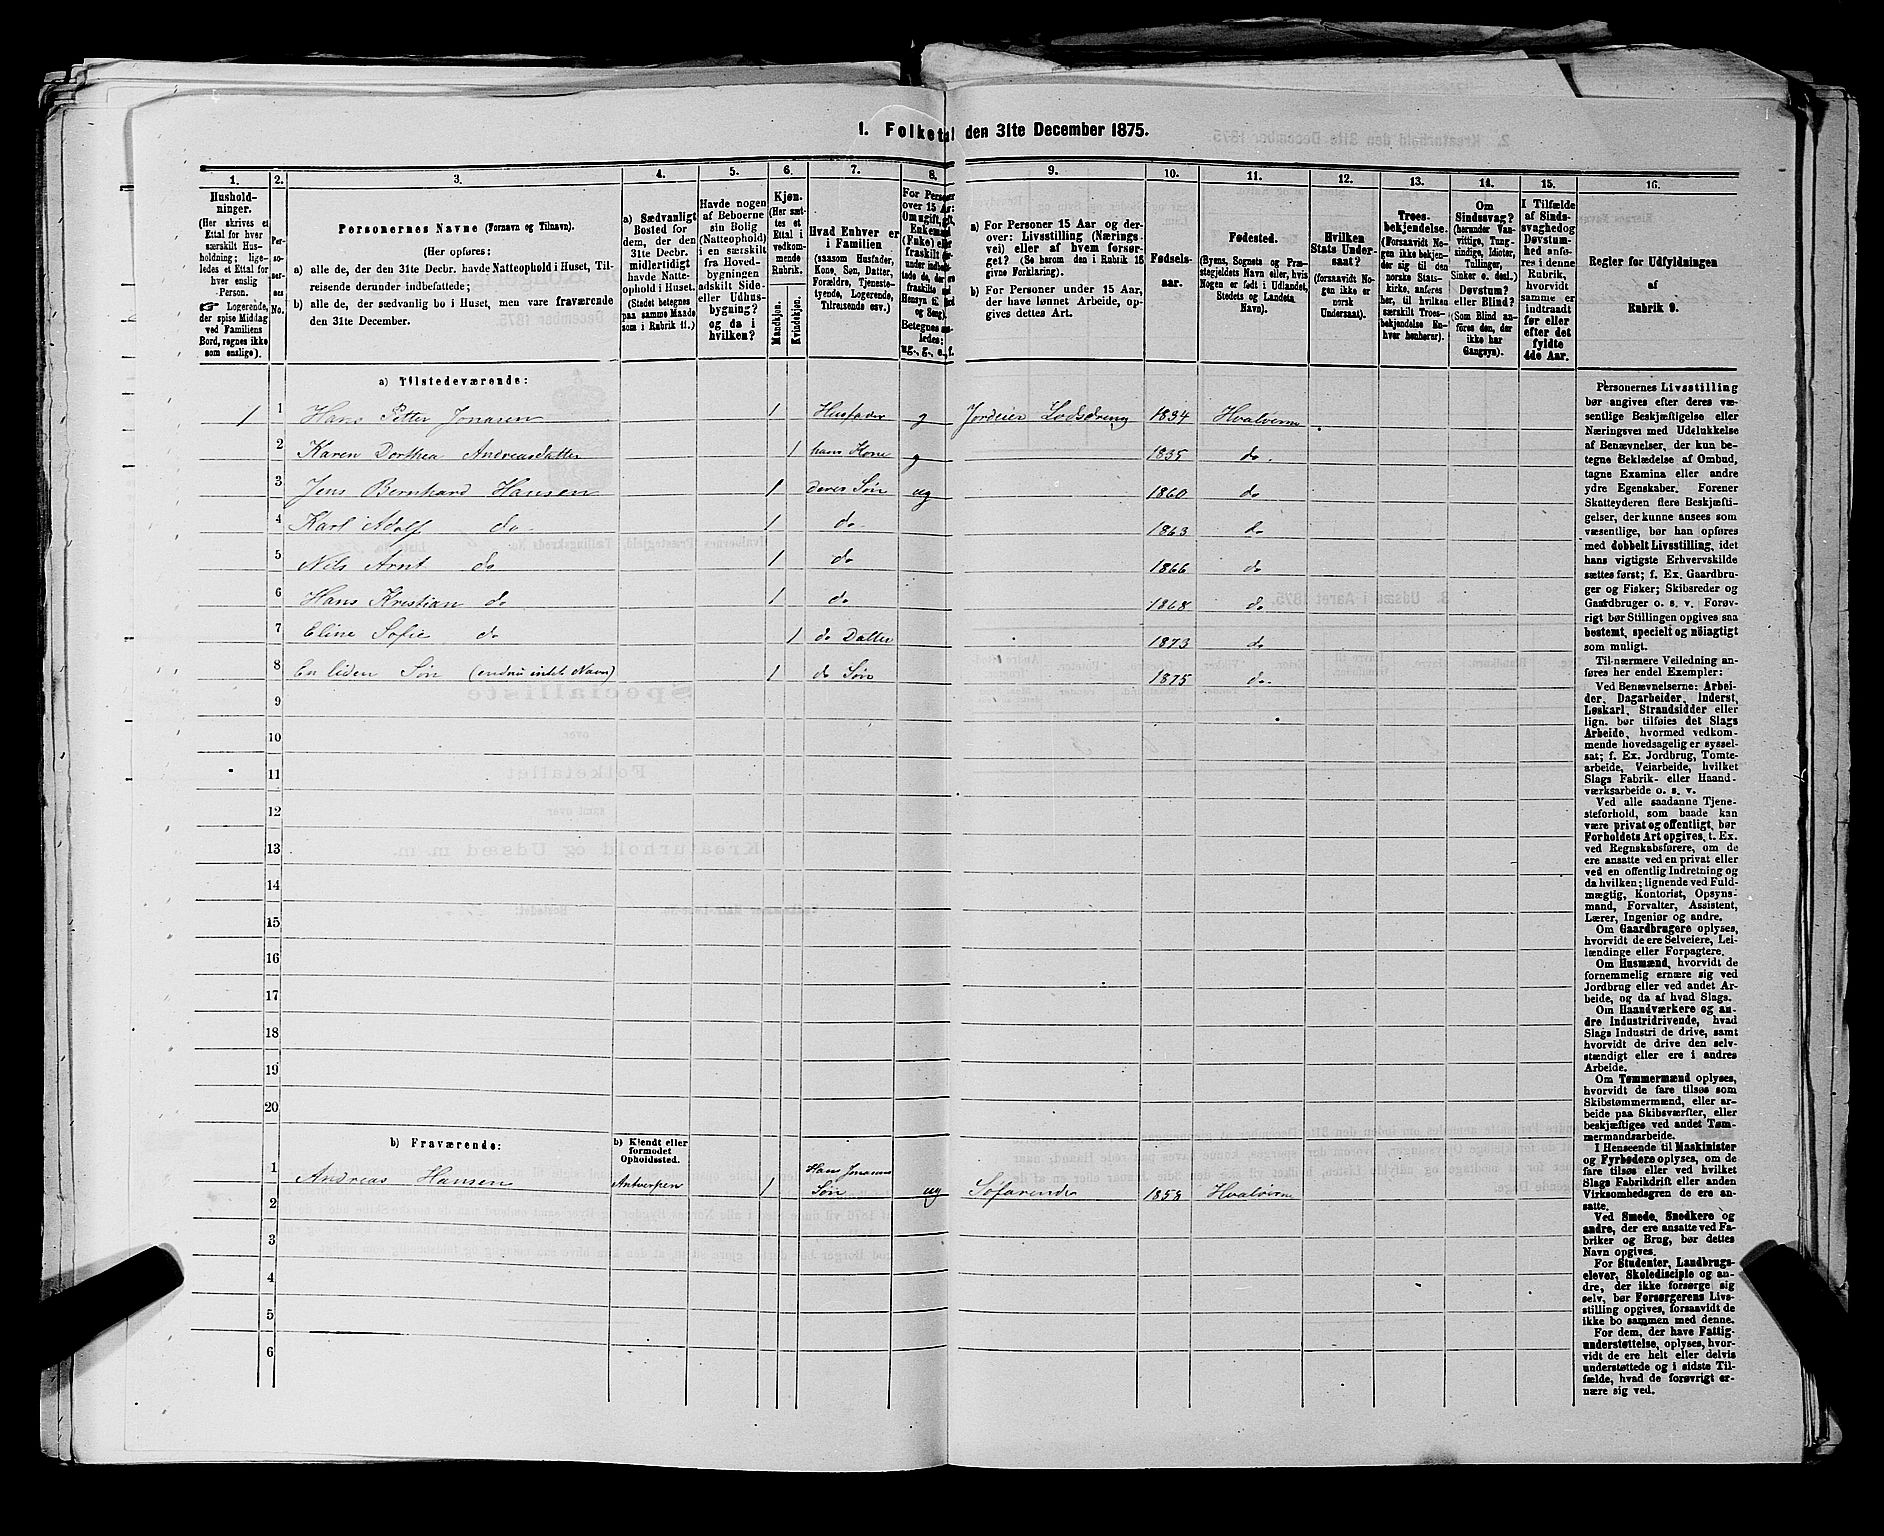 1. Folketal den 31te December 1875.
1.
2.
3.
4.
5.
6.
7.
8.
9.
10.
11.
12.
13.
14.
15.
16.
Hushold-
ninger.
(Her skrives et
Ettal for hver
særskilt Hus-
holdning; lige-
ledes et Ettal for
hver enslig
Person.
☞ Logerende,
der spise Middag
ved Familiens
Bord, regnes ikke
som enslige).
Per-
so-
ner-
nes
No.
Personernes Navne (Fornavn og Tilnavn).
(Her opføres:
a) alle de, der den 31te Decbr. havde Natteophold i Huset, Til-
reisende derunder indbefattede;
b) alle de, der sædvanlig bo i Huset, men vare fraværende
den 31te December.
a) Sædvanligt
Bosted for
dem, der den
31te Decbr.
midlertidigt
havde Natte-
ophold i Huset.
(Stedet betegnes
paa samme Maade
som i Rubrik 11.)
Havde nogen
af Beboerne
sin Bolig
(Natteophold)
i en særskilt
fra Hoved-
bygningen
adskilt Side-
eller Udhus-
bygning?
og da i
hvilken?
Kjøn.
(Her sæt-
tes et
Ettal i
vedkom-
mende
Rubrik.
Mandkjøn.
Kvindekjøn.
Hvad Enhver er
i Familien
(saasom Husfader,
Kone, Søn, Datter,
Forældre, Tjeneste-
tyende, Logerende,
Tilreisende osv.)
For Personer
over 15 Aar:
Om ugift, gift,
Enkemand
(Enke) eller
fraskilt
Betegnes saa-
ledes:
ug., g., e., f.
a) For Personer 15 Aar og der-
over: Livsstilling (Nærings-
vei) eller af hvem forsør-
get? (Se herom den i Rubrik 16
givne Forklaring).
b) For Personer under 15 Aar,
der have lønnet Arbeide, op-
gives dettes Art.
Fødsels-
aar.
Fødested.
(Byens, Sognets og Præ-
stegjeldets Navn eller, hvis
Nogen er født i Udlandet,
Stedets og Landets
Navn).
Hvilken
Stats Under-
saat?
(forsaavidt No-
gen ikke er
norsk
Undersaat).
Troes-
bekjendelse.
(Forsaavidt No-
gen ikke bekjen-
der sig til den
norske Stats-
kirke, anføres
her, til hvilken
særskilt Troes-
bekjendelse En-
hver henhører).
Om
Sindssvag?
(herunder Van-
vittige, Tung-
sindige, Idioter,
Tullinger,
Sinker o. desl.)
Døvstum?
eller Blind?
(Som Blind an-
føres den, der
ikke har
Gangsyn).
I Tilfælde
af Sinds-
svaghed og
Døvstum-
hed anfø-
res i denne
Rubrik,
hvorvidt
samme er
indtraadt
før eller
efter det
fyldte
4de Aar.
Regler for Udfyldningen
af
Rubrik 9.
a) Tilstedeværende:
1 1 Hans Petter Jonasen 1 Husfader g Jordeier Lodsdreng 1834 Hvaløerne
2 Karen Dorthea Andreasdatter 1 hans Kone g 1835 do.
3 Jens Bernhard Hansen 1 deres Søn ug 1860 do
4 Karl Adolf do. 1 do. 1863 do
5 Nils Arnt do 1 do 1866 do
6 Hans Kristian do 1 do 1868 do
7 Eline Sofie do 1 do Datter 1873 do
8 En liden Søn (endnu intet Navn) 1 do Søn 1875 do.
9
10
11
12
13
14
15
16
17
18
19
20
b) Fraværende:
b) Kjendt eller
formodet
Opholdssted.
1 Andreas Hansen Antwerpen 1 Hans Jonasens
Søn ug Søfarende 1858 Hvaløerne
2
3
4
5
6
Personernes Livsstilling
bør angives efter deres væ-
sentlige Beskjæftigelse eller
Næringsvei med Udelukkelse
af Benævnelser, der kun be-
tegne Beklædelse af Ombud,
tagne Examina eller andre
ydre Egenskaber. Forener
Skatteyderen flere Beskjæfti-
gelser, der kunne ansees som
væsentlige, bør han opføres
med dobbelt Livsstilling, idet
hans vigtigste Erhvervskilde
sættes først; f. Ex. Gaardbru-
ger og Fisker; Skibsreder og
Gaardbruger o. s. v. Forøv-
rigt bør Stillingen opgives saa
bestemt, specielt og nøiagtigt
som muligt.
Til nærmere Veiledning an-
føres her endel Exempler:
Ved Benævnelserne: Arbei-
der, Dagarbeider, Inderst,
Løskarl, Strandsidder eller
lign. bør tilføies det Slags
Arbeide, hvormed vedkom-
mende hovedsagelig er syssel-
sat; f. Ex. Jordbrug, Tomte-
arbeide, Veiarbeide, hvilket
Slags Fabrik- eller Haand-
værksarbeide o. s. v.
Ved alle saadanne Tjene-
steforhold, som baade kan
være privat og offentligt, bør
Forholdets Art opgives, t. Ex.
ved Regnskabsførere, om de
ere ansatte ved en privat eller
ved en offentlig Indretning og
da hvilken; lignende ved Fuld-
mægtig, Kontorist, Opsyns-
mand, Forvalter, Assistent,
Lærer, Ingeniør og andre.
Om Gaardbrugere oplyses,
hvorvidt de ere Selveiere, Lei-
lændinge eller Forpagtere.
Om Husmænd, hvorvidt de
fornemmelig ernære sig ved
Jordbrug eller ved andet Ar-
beide, og da af hvad Slags.
Om Haandværkere og an-
dre Industridrivende, hvad
Slags Industri de drive, samt
hvorvidt de drive den selv-
stændigt eller ere i andres
Arbeide.
Om Tømmermænd oplyses,
hvorvidt de fare tilsøs som
Skibstømmermænd, eller ar-
beide paa Skibsværfter, eller
beskjæftiges ved andet Tøm-
mermandsarbeide.
I Henseende til Maskinister
og Fyrbødere oplyses, om de
fare tilsøs eller ved hvilket
Slags Fabrikdrift eller anden
Virksomhedsgren de ere an-
satte.
Ved Smede, Snedkere og
andre, der ere ansatte ved Fa-
briker og Brug, bør dettes
Navn opgives.
For Studenter, Landbrugs-
elever, Skoledisciple og an-
dre, der ikke forsørge sig
selv, bør Forsørgerens Livs-
stilling opgives, forsaavidt de
ikke bo sammen med denne.
For dem, der have Fattig-
understøttelse, oplyses, hvor-
vidt de ere helt eller delvis
understøttede og i sidste Til-
fælde, hvad de forøvrigt er-
nære sig ved.